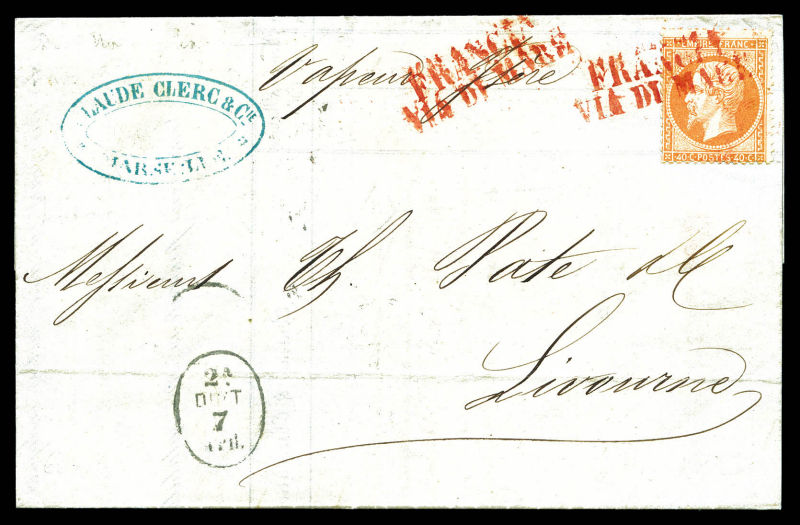 Vapeur
FRANCIA
VIA DI MARE
FRANCIA
VIA DI MARE
EMPIRE FRANC
40 C POSTES 40 C
CLAUDE CLERC & Cie
MARSEILLE
Messieurs Th. Pate & C
Livourne
2A
DIST
7